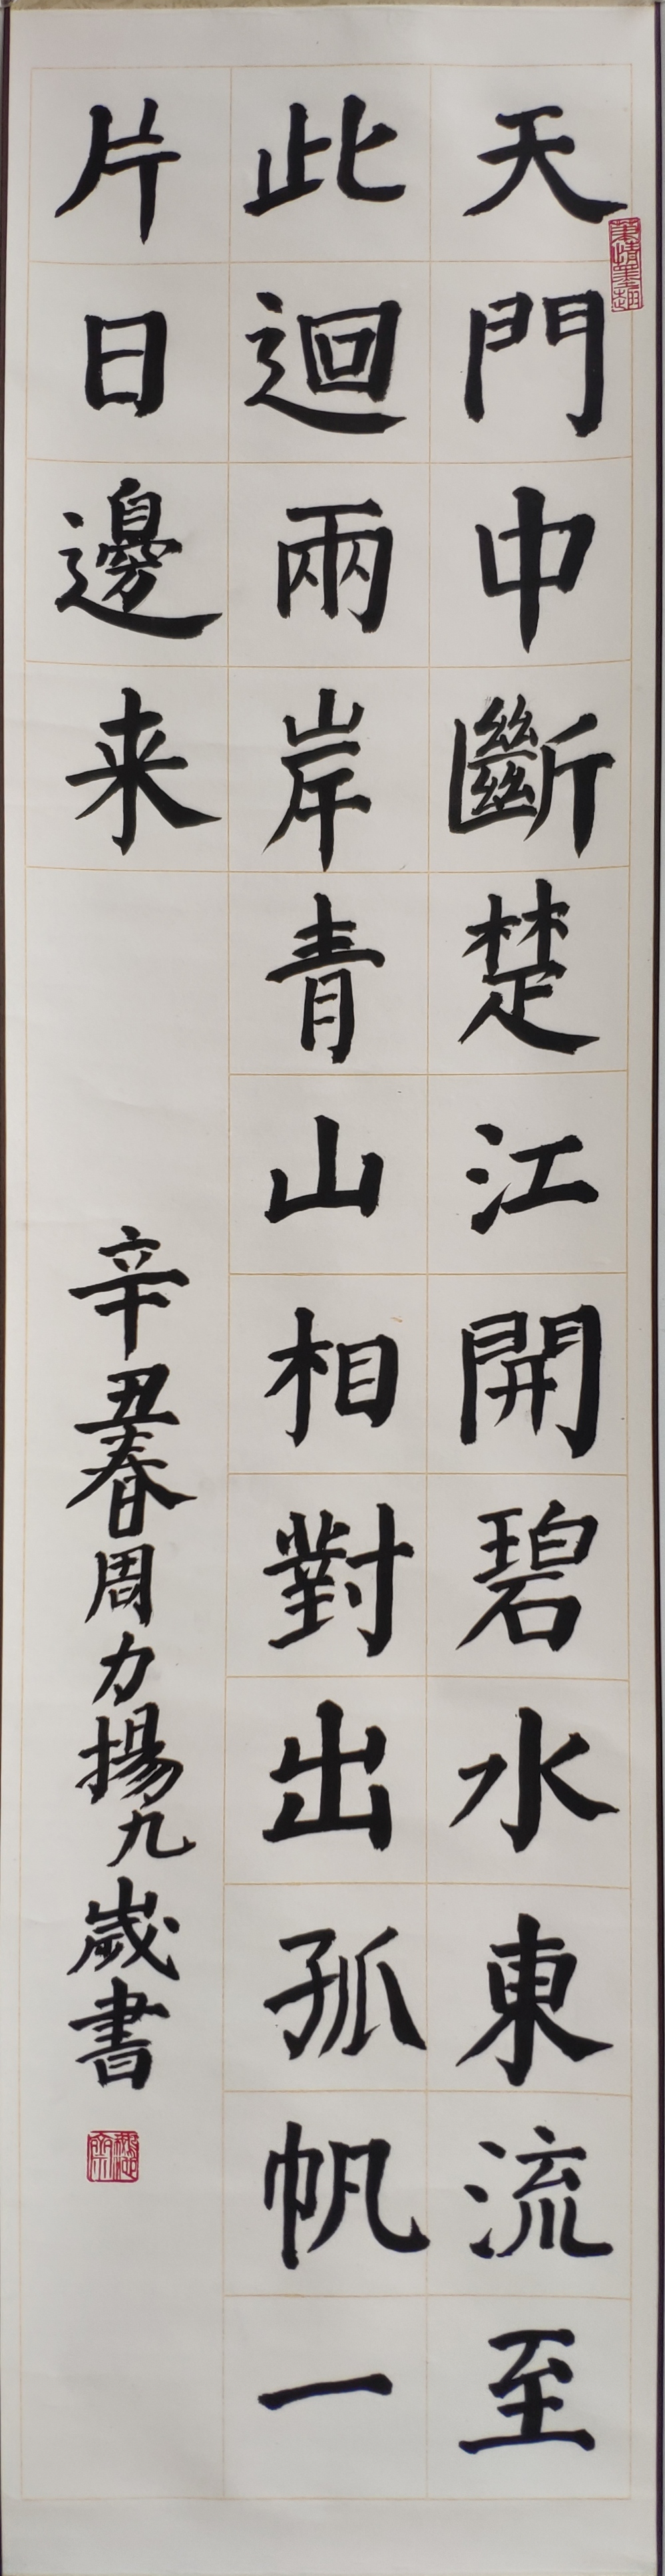 天門中斷楚江開碧水東流至
此迴兩岸青山相對出孤帆一
片日邊来
辛丑春周力揚九歲書
筆情墨趣